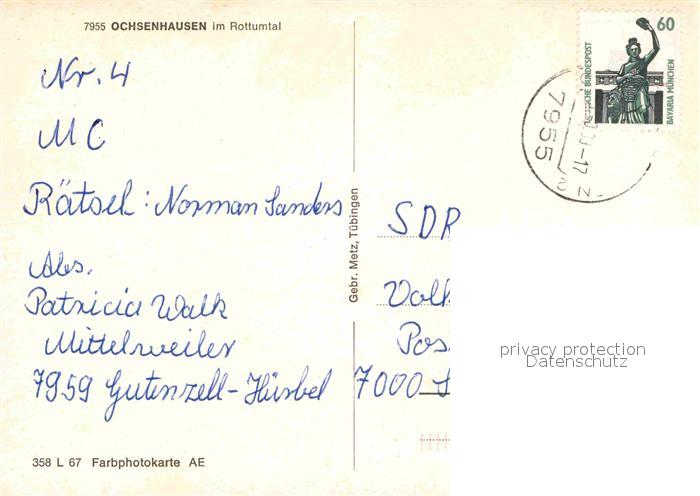 7955 OCHSENHAUSEN im Rottumtal
Nr. 4
MC
Rätsel: Norman Sanders
Abs.
Patricia Walk
Mittelweiler
7959 Gutenzell-Hürbel
358 L 67 Farbphotokarte AE
Gebr. Metz, Tübingen
60
DEUTSCHE BUNDESPOST
BAVARIA MÜNCHEN
7955
-17
SDR
Volk
Pos
7000 S
privacy protection
Datenschutz